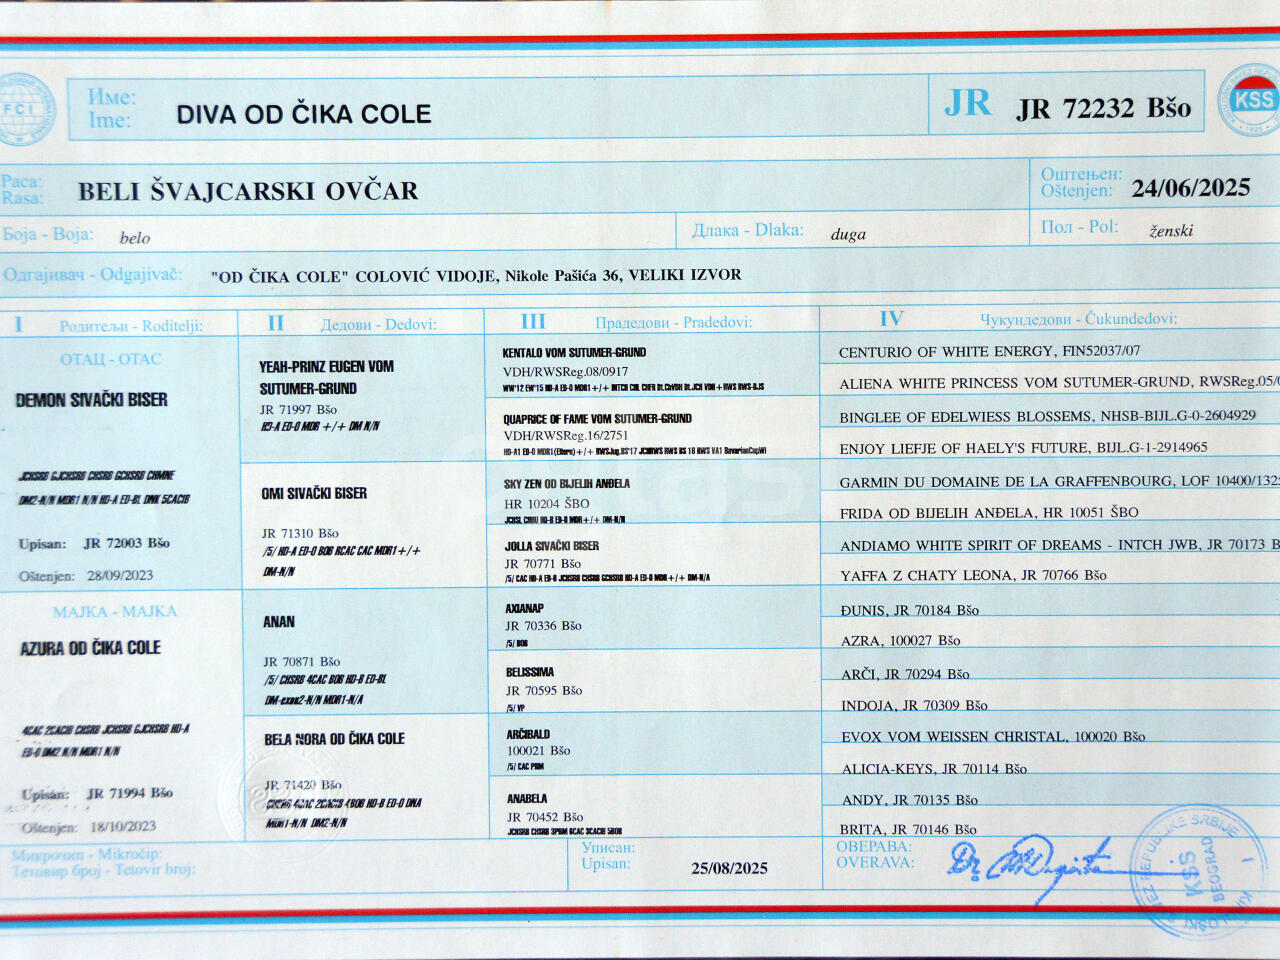 FCI
Име:
Ime:
DIVA OD ČIKA COLE
JR
JR 72232 Bšo
KSS
Раса:
Rasa:
BELI ŠVAJCARSKI OVČAR
Оштењен:
Oštenjen:
24/06/2025
Боја - Boja:
belo
Длака - Dlaka:
duga
Пол - Pol:
ženski
Одгајивач - Odgajivač:
"OD ČIKA COLE" COLOVIĆ VIDOJE, Nikole Pašića 36, VELIKI IZVOR
I
Родитељи - Roditelji:
II
Дедови - Dedovi:
III
Прадедови - Pradedovi:
IV
Чукундедови - Čukundedovi:
ОТАЦ - OTAC
DEMON SIVAČKI BISER
JCHSRB GJCHSRB CHSRB GCHSRB
DM2-N/N MDR1 N/N HD-A ED-BL 5CACIB
Upisan: JR 72003 Bšo
Oštenjen: 28/09/2023
МАЈКА - MAJKA
AZURA OD ČIKA COLE
4CAC 2CACIB CHSRB JCHSRB GJCHSRB HD-A
ED-0 DM2 N/N MDR1 N/N
Upisan: JR 71994 Bšo
Oštenjen: 18/10/2023
YEAH-PRINZ EUGEN VOM
SUTUMER-GRUND
JR 71997 Bšo
HD-A ED-0 MDR +/+ DM N/N
OMI SIVAČKI BISER
JR 71310 Bšo
/5/ HD-A ED-0 BOB RCAC CAC MDR1+/+
DM-N/N
ANAN
JR 70871 Bšo
/5/ CHSRB 4CAC BOB HD-B ED-BL
DM-exon2-N/N MDR1-N/A
BELA NORA OD ČIKA COLE
JR 71420 Bšo
CHSRB 4CAC 2CACIB 4BOB HD-B ED-0 DNA
MDR1-N/N DM2-N/N
KENTALO VOM SUTUMER-GRUND
VDH/RWSReg.08/0917
WW'12 EW'15 HD-A ED-0 MDR1 +/+ INTCH VDH + RWS RWS-BJS
QUAPRICE OF FAME VOM SUTUMER-GRUND
VDH/RWSReg.16/2751
HD-A1 ED-0 MDR1(Eltern) +/+ RWS BS 18 RWS VA1
SKY ZEN OD BIJELIH ANĐELA
HR 10204 ŠBO
HD-B ED-0 MDR+/+ DM-N/N
JOLLA SIVAČKI BISER
JR 70771 Bšo
/5/ CAC HD-A ED-0 JCHSRB CHSRB GCHSRB HD-A ED-0 MDR +/+ DM-N/A
AXIANAP
JR 70336 Bšo
/5/ BOB
BELISSIMA
JR 70595 Bšo
/5/ VP
ARČIBALD
100021 Bšo
/5/ CAC PRM
ANABELA
JR 70452 Bšo
JCHSRB CHSRB 3PRM 6CAC 3CACIB 5BOB
CENTURIO OF WHITE ENERGY, FIN52037/07
ALIENA WHITE PRINCESS VOM SUTUMER-GRUND, RWSReg.05/0
BINGLEE OF EDELWIESS BLOSSEMS, NHSB-BIJL.G-0-2604929
ENJOY LIEFJE OF HAELY'S FUTURE, BIJL.G-1-2914965
GARMIN DU DOMAINE DE LA GRAFFENBOURG, LOF 10400/1325
FRIDA OD BIJELIH ANĐELA, HR 10051 ŠBO
ANDIAMO WHITE SPIRIT OF DREAMS - INTCH JWB, JR 70173 B
YAFFA Z CHATY LEONA, JR 70766 Bšo
ĐUNIS, JR 70184 Bšo
AZRA, 100027 Bšo
ARČI, JR 70294 Bšo
INDOJA, JR 70309 Bšo
EVOX VOM WEISSEN CHRISTAL, 100020 Bšo
ALICIA-KEYS, JR 70114 Bšo
ANDY, JR 70135 Bšo
BRITA, JR 70146 Bšo
Микрочип - Mikročip:
Тетовир број - Tetovir broj:
Уписан:
Upisan:
25/08/2025
ОВЕРАВА:
OVERAVA:
Dr
REPUBLIKE SRBIJE
KSS
BEOGRAD
I